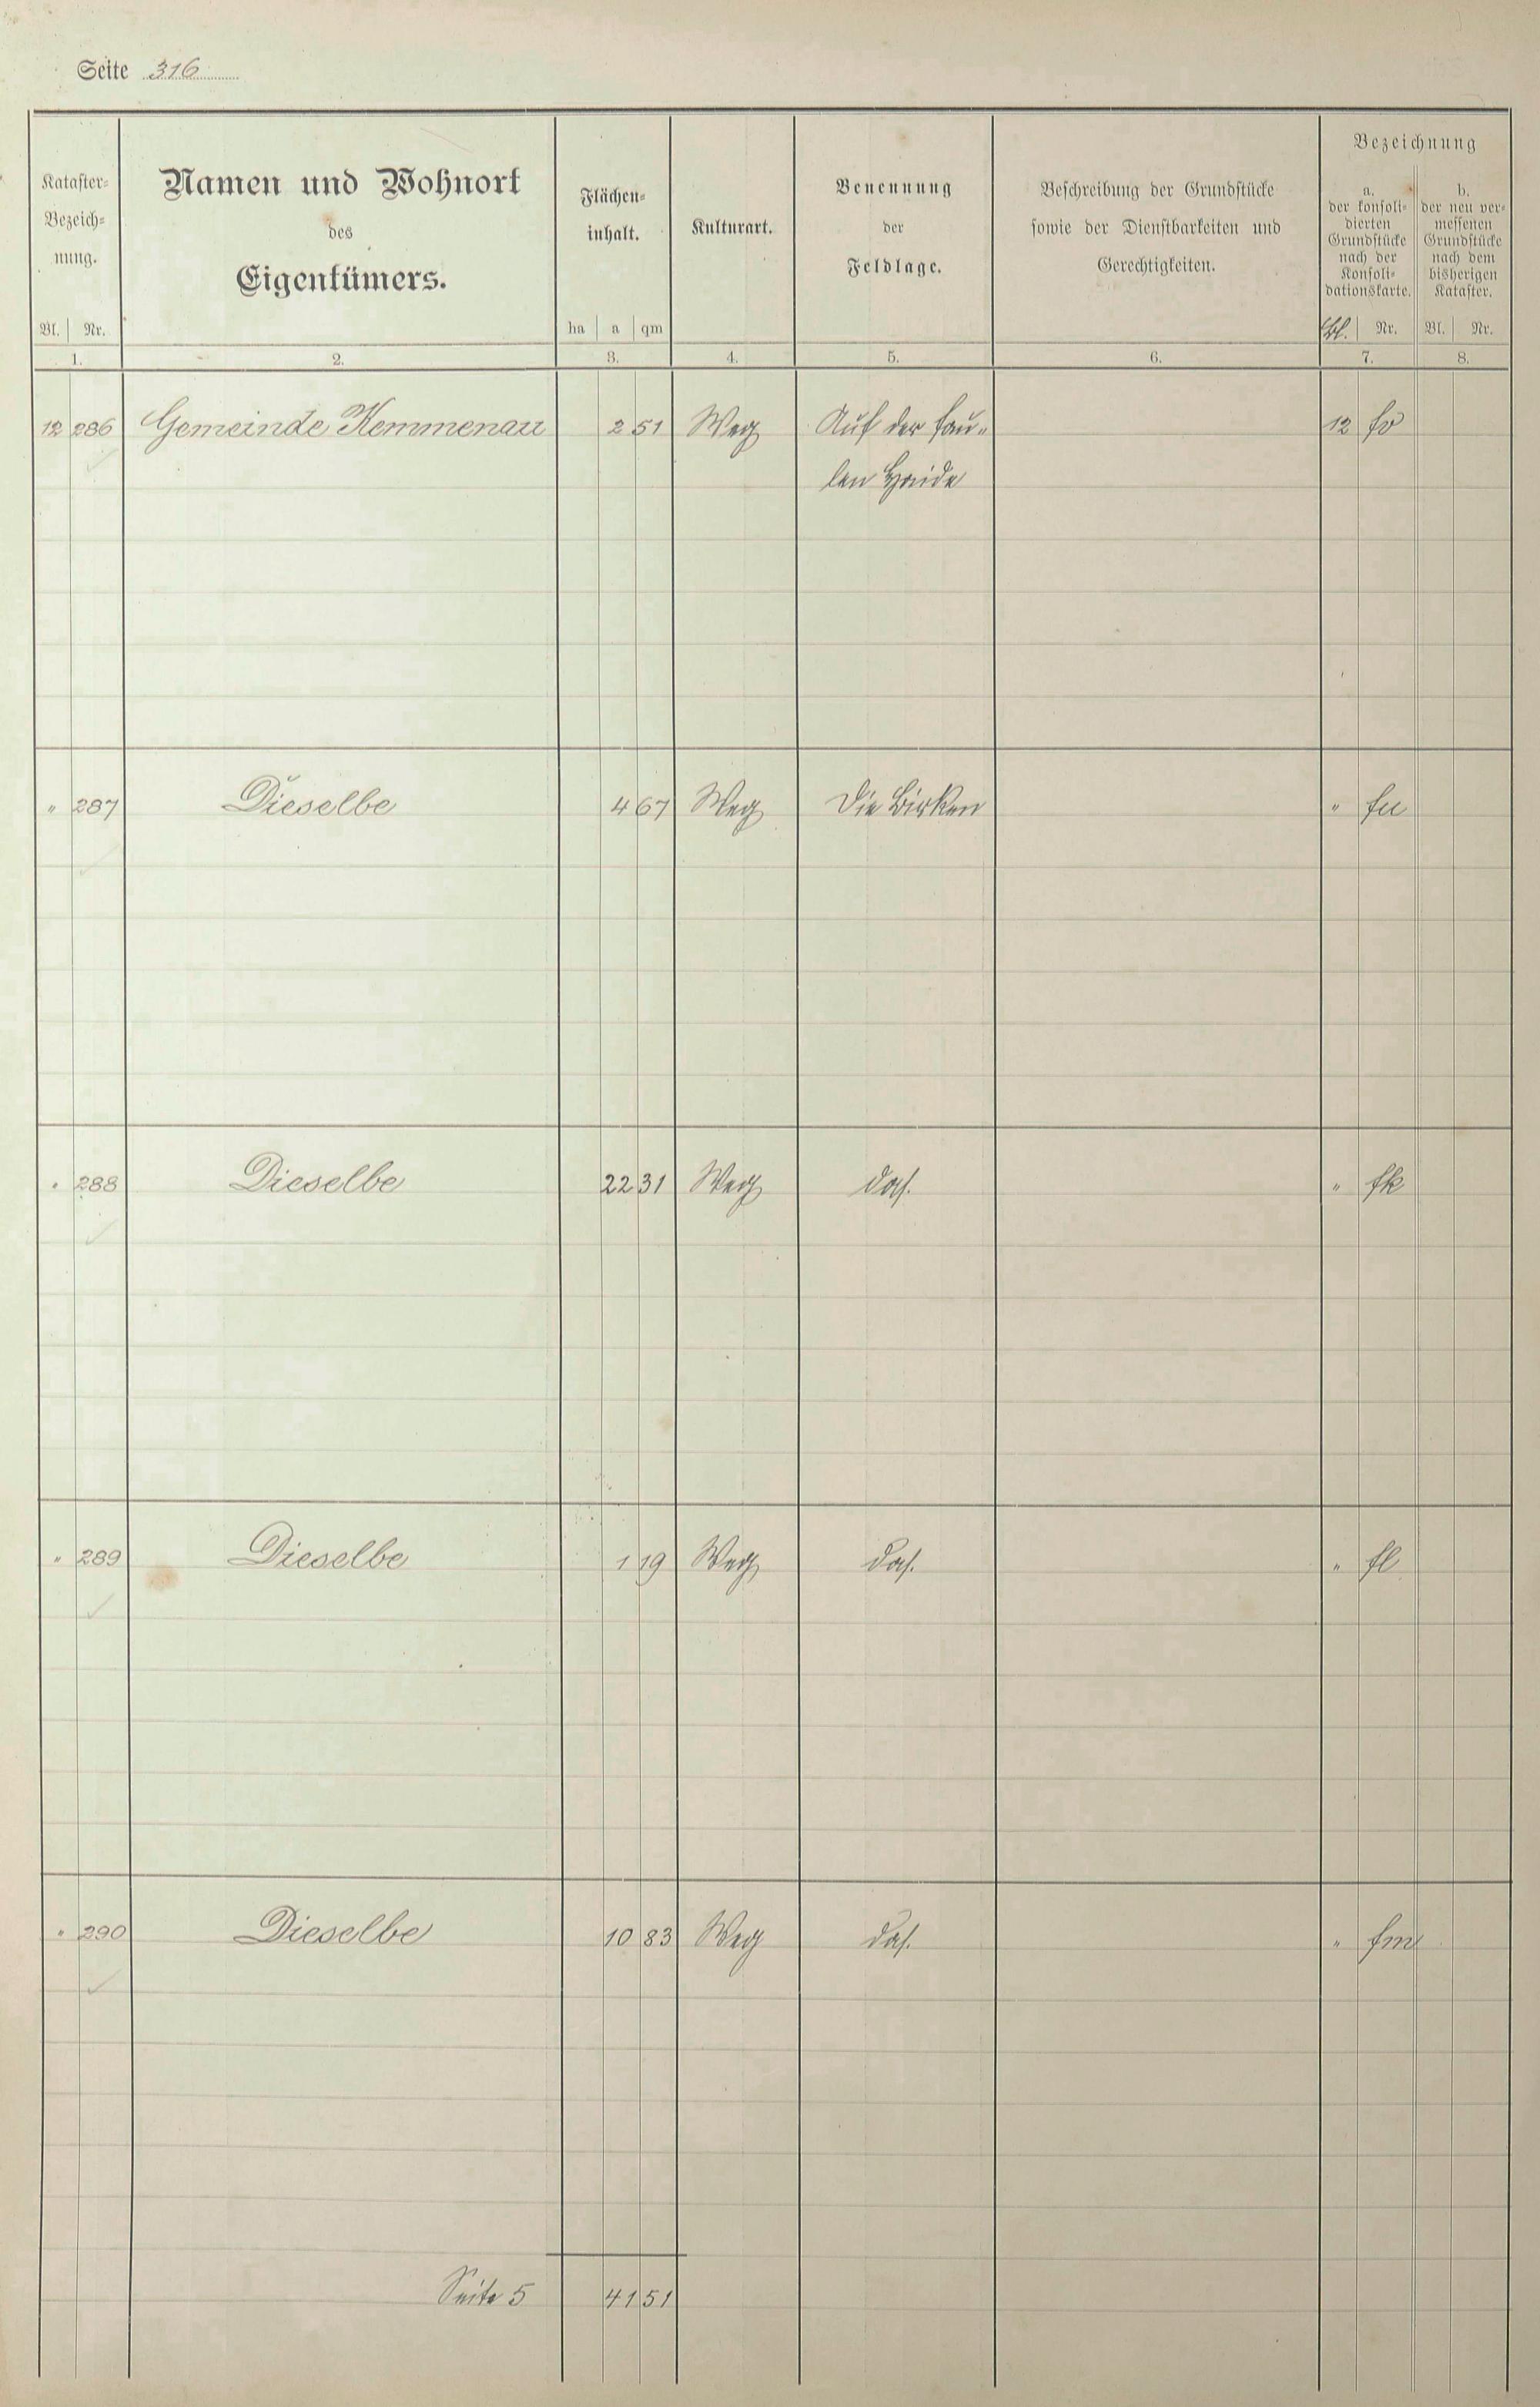 Seite 316
Kataster-
Bezeich-
nung.
Bl. Nr.
1.
Namen und Wohnort
des
Eigentümers.
2.
Flächen-
inhalt.
ha a qm
3.
Kulturart.
4.
Benennung
der
Feldlage.
5.
Beschreibung der Grundstücke
sowie der Dienstbarkeiten und
Gerechtigkeiten.
6.
Bezeichnung
a.
der konsoli-
dierten
Grundstücke
nach der
Konsoli-
dationskarte.
Bl. Nr.
7.
b.
der neu ver-
messenen
Grundstücke
nach dem
bisherigen
Kataster.
Bl. Nr.
8.
12 286 Gemeinde Kemmenau 2 51 Weg Auf der fau- 12 fo
len Haide
" 287 Dieselbe 4 67 Weg Die Birken " fu
" 288 Dieselbe 22 31 Weg das. " fk
" 289 Dieselbe 1 19 Weg das. " fl
" 290 Dieselbe 10 83 Weg das. " fm
Seite 5 41 51